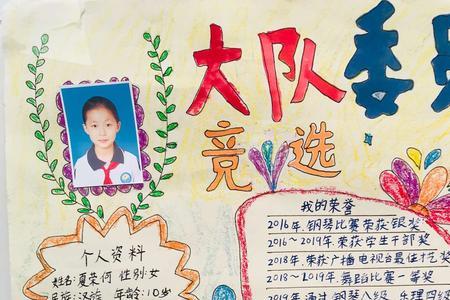 大队委员
竞选
我的荣誉
2016年.钢琴比赛荣获银奖
2016~2019年荣获学生干部奖
2018年.荣获广播电视台最佳才艺奖
2018~2019年.舞蹈比赛一等奖
2019年.通过钢琴八级、乐理四级
个人资料
姓名:夏荣何 性别:女
民族:汉族 年龄:10岁